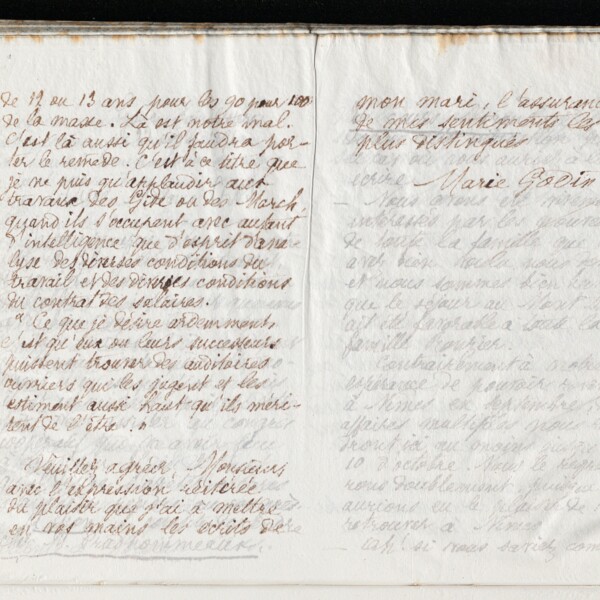 de 12 ou 13 ans, pour les 90 pour 100
de la masse. Là est notre mal.
C'est là aussi qu'il faudra por-
ter le remède. C'est à ce titre que
je ne puis qu'applaudir aux
travaux des Gide ou des March
quand ils s'occupent avec autant
d'intelligence que d'esprit d'ana-
lyse des diverses conditions du
travail et des diverses conditions
du contrat des salaires.
" Ce que je désire ardemment,
c'est qu'eux ou leurs successeurs
puissent trouver des auditoires
ouvriers qui les jugent et les
estiment aussi haut qu'ils méri-
tent de l'être. "
Veuillez agréer, Monsieur,
avec l'expression réitérée
du plaisir que j'ai à mettre
en vos mains les écrits de
mon mari, l'assuran
de mes sentiments les
plus distingués
Marie Godin
- Nous avons
intéressés par les
de
avez bien voulu nous
et nous sommes bien
que le séjour au Mont
ait été favorable à tous
famille
Contrairement à notre
espérance de pouvoir
à Nîmes en septembre
affaires multiples nous
ront ici au moins jusqu
10 d'octobre. Nous le regre
rons doublement, puisque
aurions eu le plaisir de
retrouver à Nîmes
- Ah! si nous saviez com